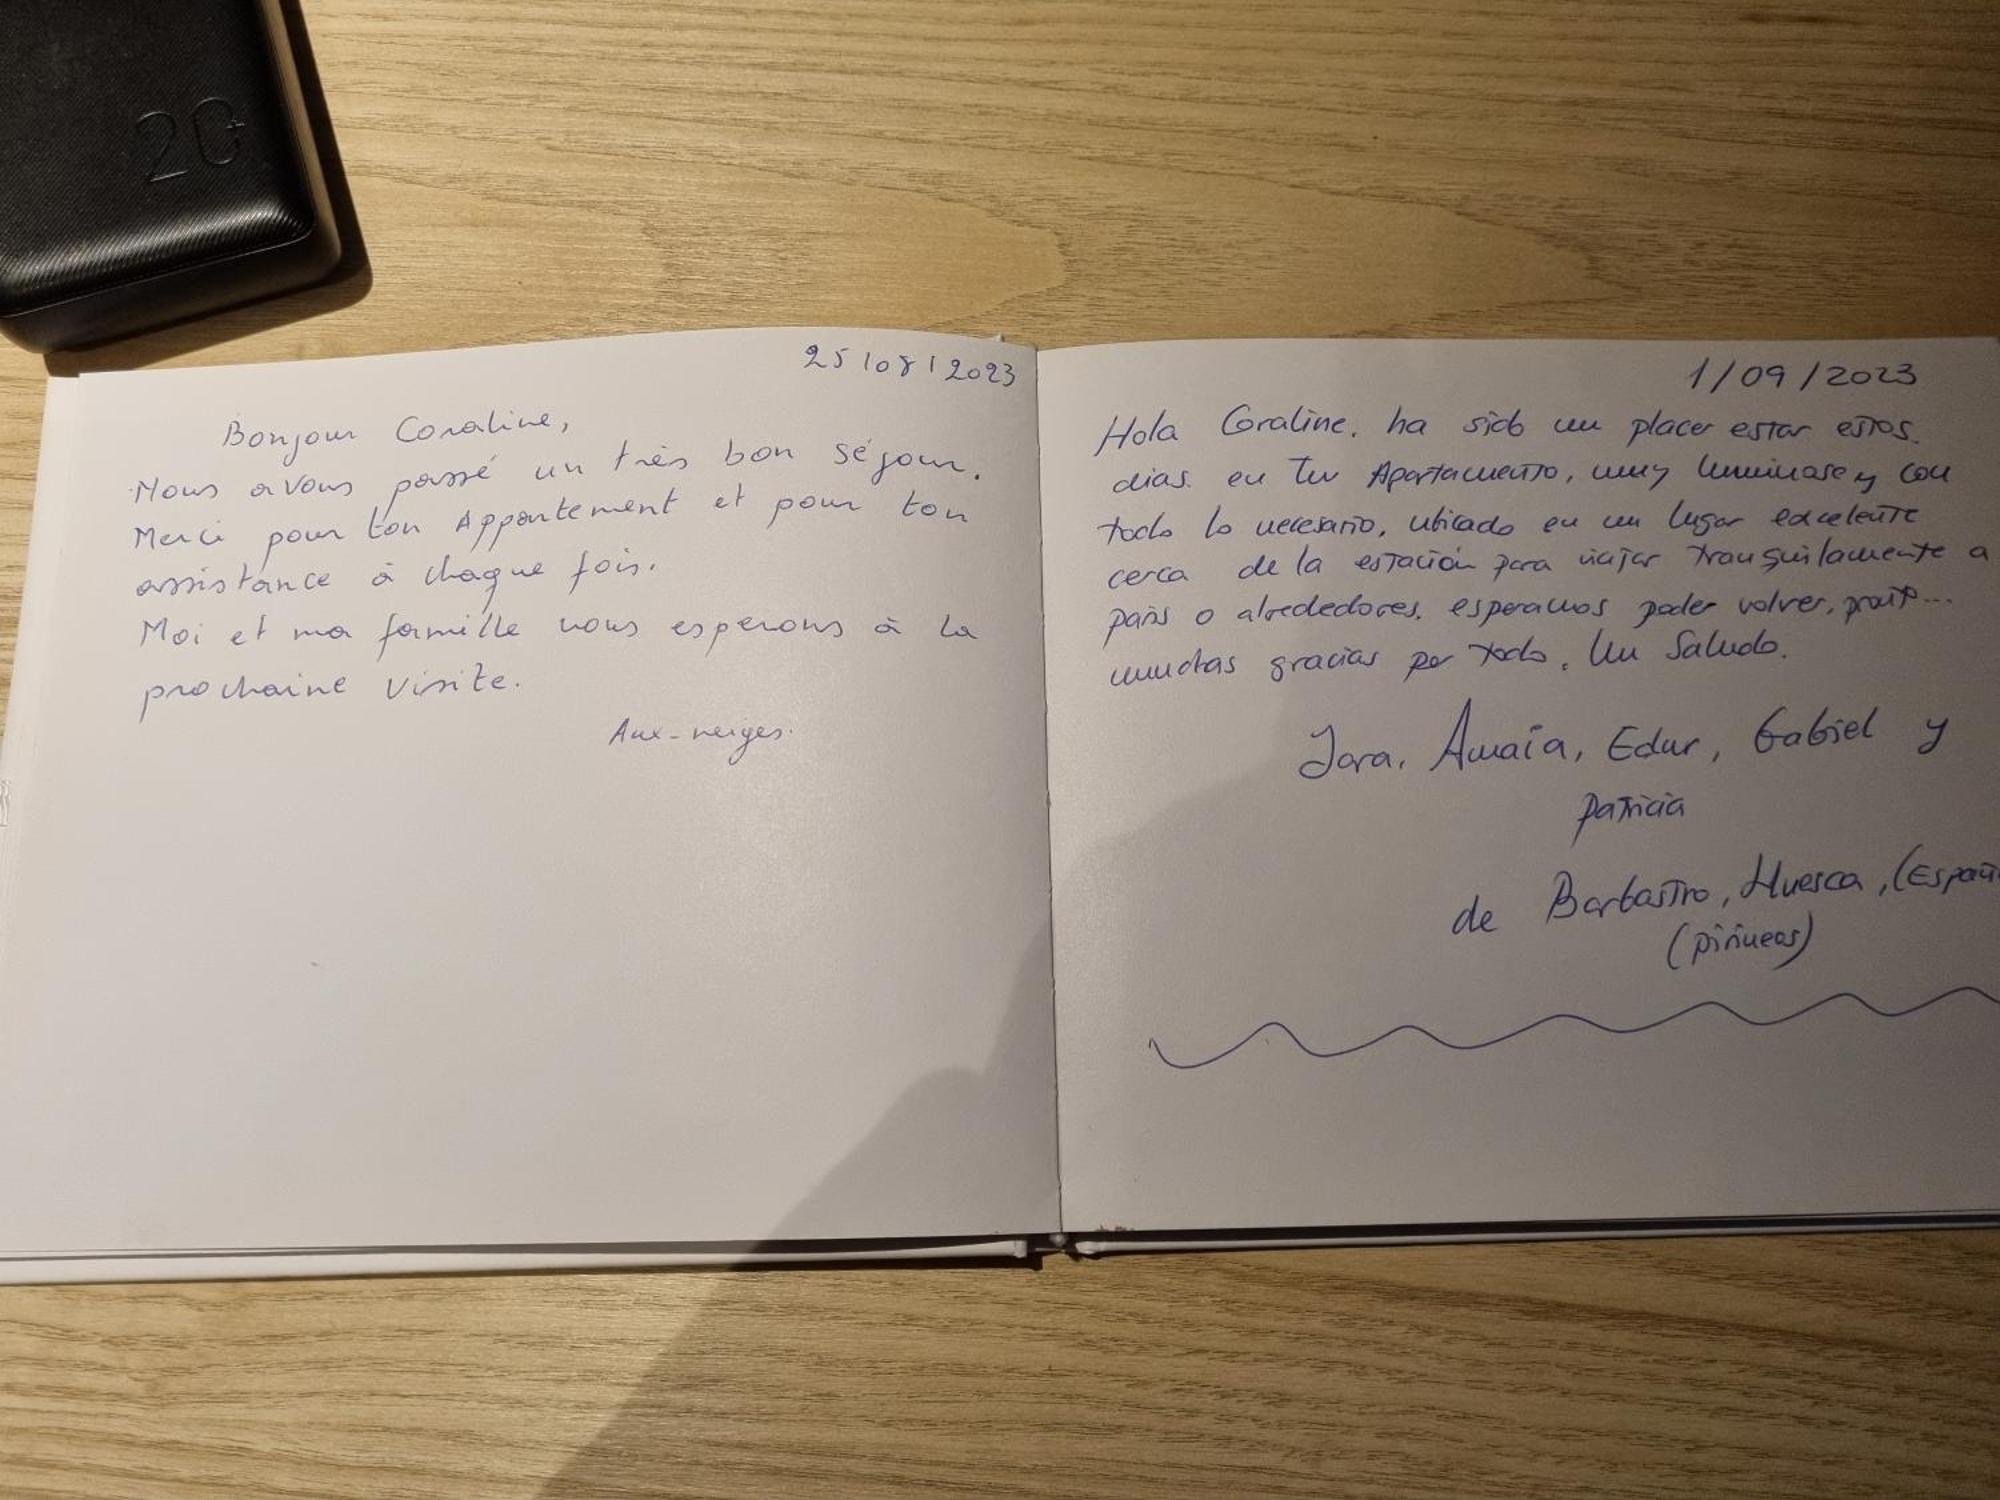 20+
25/08/2023
Bonjour Coraline,
Nous avons passé un très bon séjour.
Merci pour ton Appartement et pour ton
assistance à chaque fois.
Moi et ma famille nous esperons à la
prochaine visite.
1/09/2023
Hola Coraline, ha sido un placer estar estos
dias en tu Apartamento, muy luminoso y con
todo lo necesario, ubicado en un lugar excelente
cerca de la estación para viajar tranquilamente a
paris o alrededores, esperamos poder volver, pronto...
muchas gracias por todo. Un Saludo.
Jara, Amaia, Edur, Gabriel y
Patricia
de Barbastro, Huesca, (Españ
(pirineos)